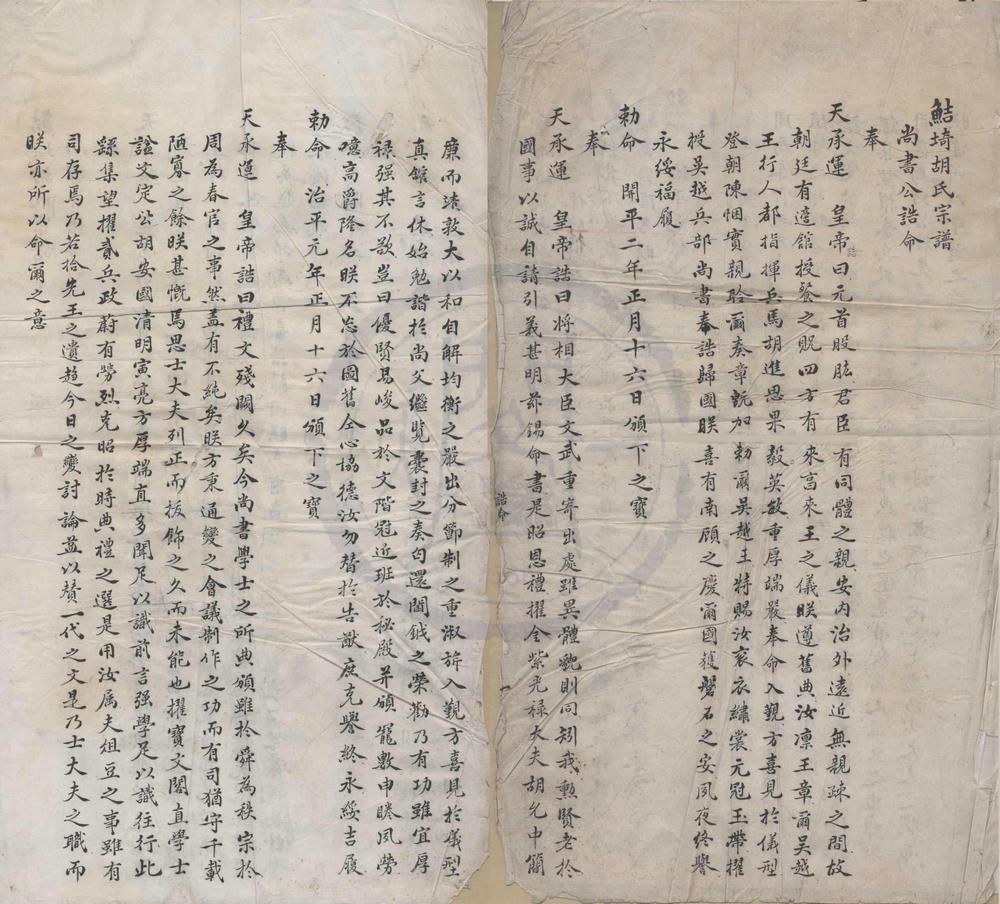 鮚埼胡氏宗譜
尚書公誥命
奉
天承運　皇帝誥曰元首股肱君臣有同體之親安內治外遠近無親疎之間故
朝廷有適館授餐之貺四方有來享來王之儀朕遵舊典汝凜王章爾吳越
王行人都指揮兵馬胡進思果毅英敏重厚端嚴奉命入覲方喜見於儀型
登朝陳悃實親聆爾奏章甄加勅爾吳越王特賜汝袞衣繡裳元冠玉帶擢
授吳越兵部尚書奉誥歸國朕喜有南顧之慶爾國獲磐石之安夙夜終譽
永綏福履
勅命　開平二年正月十六日頒下之寶
奉
天承運　皇帝誥曰將相大臣文武重寄出處雖異體貌則同矧我勲賢老於
國事以誠自請引義甚明茲錫命書是昭恩禮擢金紫光禄大夫胡允中簡
誥命
廉而靖敦大以和自解均衡之嚴出分節制之重淑旂入覲方喜見於儀型
真館言休始勉諧於尚父繼覽囊封之奏白還閫鉞之榮勸乃有功雖宜厚
禄强其不敢豈曰優賢易峻品於文階冠近班於秘殿并頒寵數申賸夙勞
噫高爵隆名朕不忘於圖舊仝心協德汝勿替於告猷庶克譽終永綏吉履
勅命　治平元年正月十六日頒下之寶
奉
天承運　皇帝誥曰禮文殘闕久矣今尚書學士之所典頒雖於舜為秩宗於
周為春官之事然盖有不純矣朕方秉通變之會議制作之功而有司猶守千載
陋寡之餘朕甚慨焉思士大夫列正而拔飾之久而未能也擢寶文閣直學士
諡文定公胡安國清明寅亮方厚端直多聞足以識前言强學足以識往行此
繇集望擢貳兵政蔚有勞烈克昭於時典禮之選是用汝属夫俎豆之事雖有
司存焉乃若拾先王之遺趨今日之變討論葢以賛一代之文是乃士大夫之職而
朕亦所以命爾之意